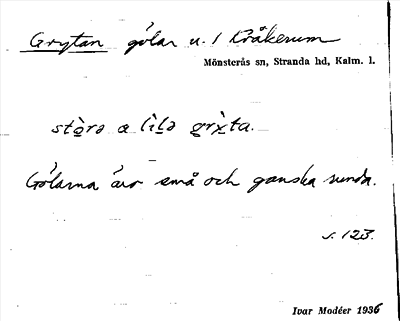 Grytan gölar u. 1 Kråkerum
Mönsterås sn, Stranda hd, Kalm. l.
stò̱rə a lì̱lə grỳ̱ta.
Gölarna äro små och ganska runda.
s. 123.
Ivar Modéer 1936